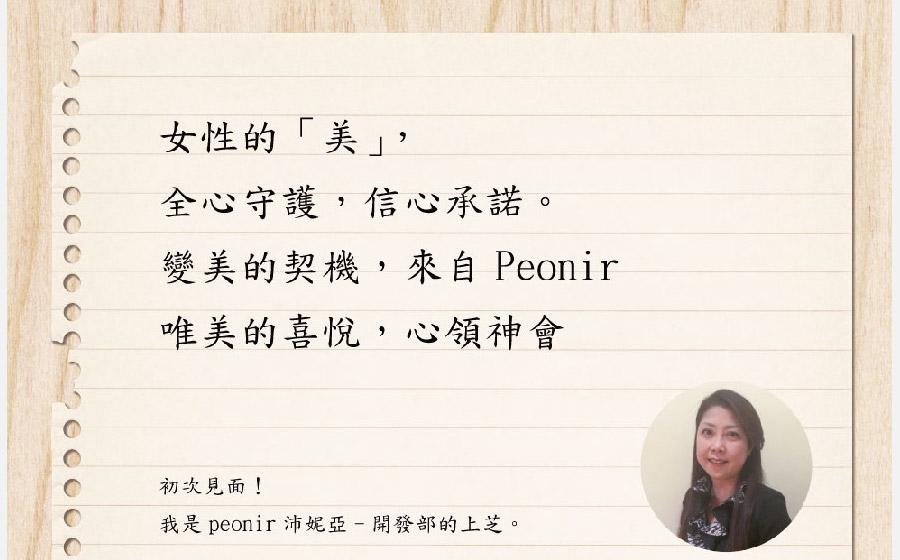 女性的「美」,
全心守護，信心承諾。
變美的契機，來自 Peonir
唯美的喜悅，心領神會
初次見面！
我是 peonir 沛妮亞－開發部的上芝。